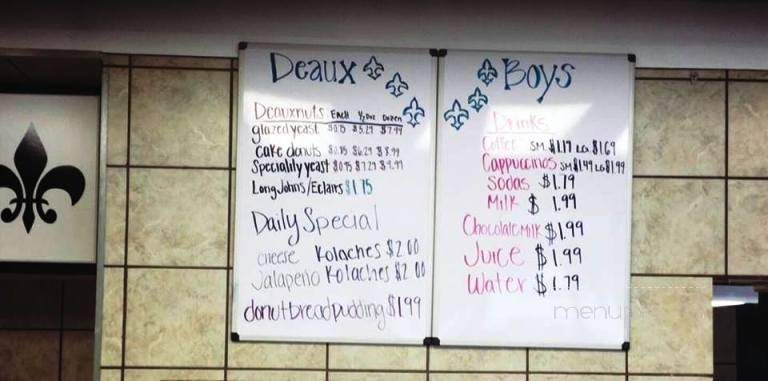 Deaux
Deauxnuts Each 1/2 Doz Dozen
glazed yeast $5.29 $7.99
Cake donuts $6.29
Speciality yeast $7.29
Long Johns/Eclairs $1.75
Daily Special
cheese Kolaches $2.00
Jalapeño Kolaches $2.00
donut bread pudding $1.99
Boys
Drinks
Coffee SM $1.19 LG $1.69
Cappuccinos SM $1.49 LG $1.99
Sodas $1.79
Milk $1.99
Chocolate Milk $1.99
Juice $1.99
Water $1.79
menu